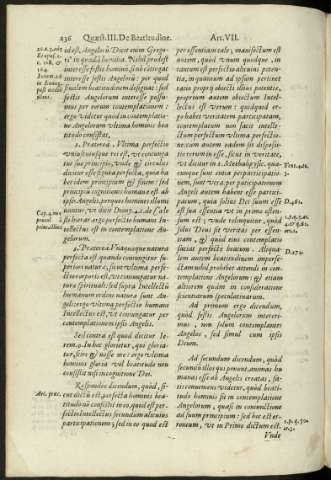 236 Quæst.III.De Beatitudine. Art.VII.
id est, Angelis? Dicit enim Grego-
ri° in quadā homilia. Nihil prodest
interesse festis hominū, si nō cōtingat
interesse festis Angelorū: per quod
finalem beatitudinem designat: sed
festis Angelorum interesse possu-
mus per eorum contemplationem:
ergo videtur quòd in contemplatio-
ne Angelorum vltima hominis bea-
titudo consistat.
2. Præterea. Vltima perfectio
vniuscuiusque rei est, vt coniunga
tur suo principio, vnde & circulus
dicitur esse figura perfecta, quia ha
bet idem principium & finem: sed
principium cognitionis humanæ est ab
ipsis Angelis, per quos homines illumi
nantur, vt dicit Diony.
ergo perfectio humani
intellectus est in contemplatione An-
gelorum.
3. Præterea. Vnaquæque natura
perfecta est quando coniungitur su-
periori naturæ, sicut vltima perfe-
ctio corporis est, vt coniungatur na-
turæ spirituali: sed supra Intellectū
humanum ordine naturæ sunt An-
geli: ergo vltima perfectio humani
Intellectus est, vt coniungatur per
contemplationem ipsis Angelis.
Sed contra est quod dicitur Ie-
rem.9. In hoc glorietur, qui gloria-
tur, scire & nosse me: ergo vltima
hominis gloria vel beatitudo non
consistit nisi in cognitione Dei.
Respondeo dicendum, quòd, si-
cut dictū est, perfecta hominis bea-
titudo nō consistit in eo, quod est per-
fectio Intellectus secundum alicuius
participationem; sed in eo quod est
per essentiam tale; manifestum est
autem, quòd vnum quodque, in
tantum est perfectio alicuius poten-
tia, in quantum ad ipsum pertinet
ratio proprij obiecti illius potentiæ,
proprium autem obiectum Intel-
lectus est verum: quidquid er-
go habet veritatem participatam,
contemplatum non facit intelle-
ctum perfectum vltima perfectio-
ne: cum autem eadem sit disposi-
tio rerum in esse, sicut in veritate,
vt dicitur in 2. Metaphysic. quæ-
cunque sunt entia per participatio-
nem, sunt vera per participationem
Angeli autem habent esse partici-
patum, quia solius Dei suum esse
est sua essentia vt in primo osten-
sum est; vnde relinquitur, quòd
solus Deus sit veritas per essen-
tiam, & quòd eius contemplatio
faciat perfectè beatum. Aliqua-
lem autem beatitudinem imperfe-
ctam nihil prohibet attendi in con-
templatione Angelorum & etiam
altiorem quàm in consideratione
scientiarum speculatiuarum.
Ad primum ergo dicendum,
quòd festis Angelorum intereri-
mus, non solum contemplantes
Angelos, sed simul cum ipsis
Deum.
Ad secundum dicendum, quòd
secundū illos qui ponunt, animas hu
manas esse ab Angelis creatas, sa-
tis conueniens videtur, quòd beati-
tudo hominis sit in contemplatione
Angelorum, quasi in coniunctione
ad suum principium: sed hoc est er-
roneum, vt in Primo dictum est.
Vnde